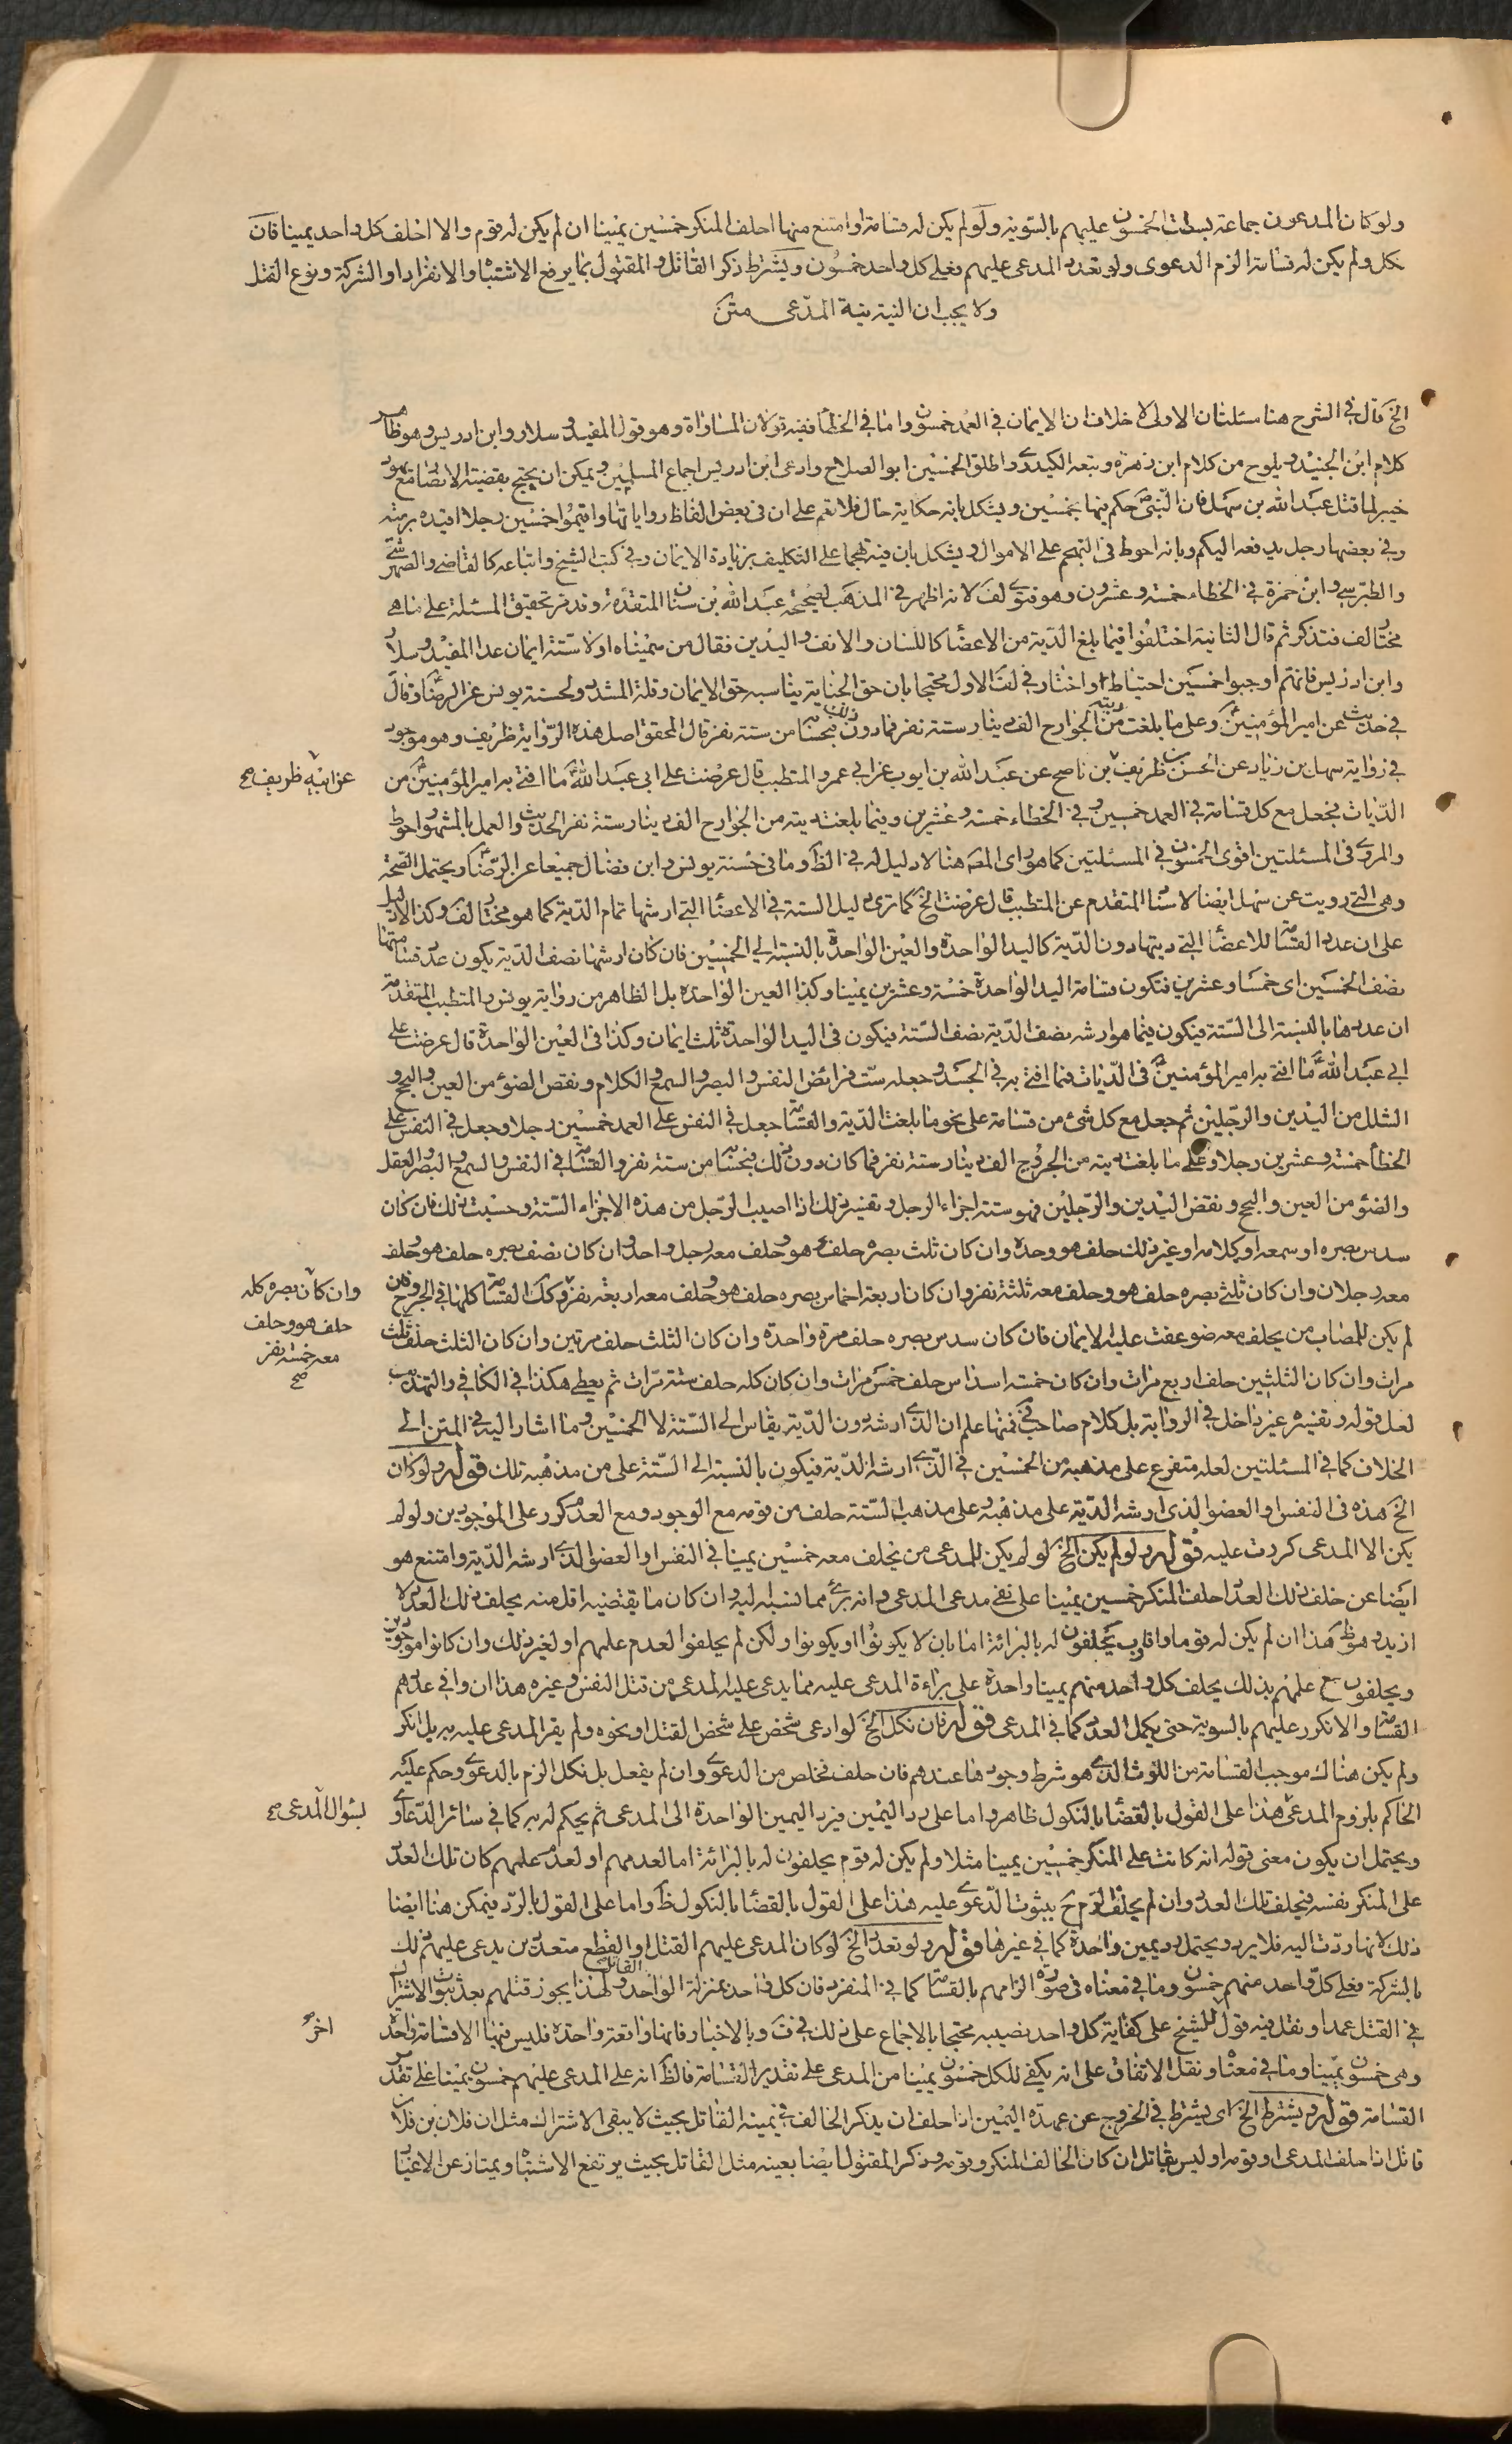 ولو كان المدعون جماعة بسطت الخمسون عليهم بالسوية ولو لم يكن له قسامة او امتنع منها احلف المنكر خمسين يمينا ان لم يكن له قوم والا احلف كل واحد يمينا فان
نكل ولم يكن له قسامة الزم الدعوى ولو تعدد المدعى عليهم فعلى كل واحد خمسون ويشترط ذكر القاتل والمقتول بما يرفع الاشتباه والانفراد او الشركة ونوع القتل
ولا يجب ان النية نية المدعى متن
الخ قال في الشرح هنا مسئلتان الاولى لا خلاف ان الايمان في العمد خمسون واما في الخطأ ففيه قولان المساواة وهو قول المفيد وسلار وابن ادريس وهو ظاهر
كلام ابن الجنيد ويلوح من كلام ابن زهرة وتبعه الكيدري واطلق الخمسين ابو الصلاح وادعى ابن ادريس اجماع المسلمين ويمكن ان يحتج بقضية الانصار مع يهود
خيبر لما قتل عبد الله بن سهل فان النبي ص حكم فيها بخمسين ويشكل بانه حكاية حال فلا تعم على ان في بعض الفاظ رواياتها واقيموا خمسين رجلا اقيده برمته
وفي بعضها رجل يدفعه اليكم وبانه احوط في التهجم على الاموال ويشكل بان فيه تهجما على التكليف بزيادة الايمان وفي كتب الشيخ واتباعه كالقاضي والصهرشتي
والطبرسي وابن حمزة في الخطاء خمسة وعشرون وهو فتوى لف لانه اظهر في المذهب لصحيحة عبد الله بن سنان المتقدمة وقد مر تحقيق المسئلة على ما هي
مختار لف فتذكر ثم قال الثانية اختلفوا فيما بلغ الدية من الاعضا كاللسان والانف واليدين فقال من سميناه اولا ستة ايمان عدا المفيد وسلار
وابن ادريس فانهم اوجبوا خمسين احتياطا واختار في لف الاول محتجا بان حق الجناية يناسبه حق الايمان وقلة المشدد ولحسنة يونس عن الرضا ع وقال
في حديث عن امير المؤمنين ع وعلى ما بلغت ديته من الجوارح الف دينار ستة نفر فما دون ذلك فبحسابه من ستة نفر قال المحقق اصل هذه الرواية ظريف وهو موجود
في رواية سهل بن زياد عن الحسن بن ظريف بن ناصح عن عبد الله بن ايوب عن ابي عمرو المتطبب قال عرضت على ابي عبد الله ع ما افتى به امير المؤمنين ع من
عن ابيه ظريف صح
الديات فجعل مع كل قسامة في العمد خمسين وفي الخطاء خمسة وعشرين وفيما بلغت ديته من الجوارح الف دينار ستة نفر الحديث والعمل بالمشهور احوط
والمروي في المسئلتين اقوى الخمسون في المسئلتين كما هو راى المصـ هنا لا دليل له في الظ وما في حسنة يونس وابن فضال جميعا عن الرضا ع ويحتمل الصحة
وهي التي رويت عن سهل ايضا لاسنا المتقدم عن المتطبب قال عرضت الخ كما ترى دليل الستة في الاعضا التي ارشها تمام الدية كما هو مختار لف وكذا الدليل
على ان عدد القسامة للاعضا التي ديتها دون الدية كاليد الواحدة والعين الواحدة بالنسبة الى الخمسين فان كان ارشها نصف الدية يكون عدد قسامتها
نصف الخمسين اى خمسا وعشرين فتكون قسامة اليد الواحدة خمسة وعشرين يمينا وكذا العين الواحدة بل الظاهر من رواية يونس والمتطبب المتقدمة
ان عددها بالنسبة الى الستة فيكون فيما هو ارشه نصف الدية نصف الستة فيكون في اليد الواحدة ثلث ايمان وكذا في العين الواحدة قال عرضت على
ابي عبد الله ع ما افتى به امير المؤمنين ع في الديات فمما افتى به في الجسد وجعله ست فرائض النفس والبصر والسمع والكلام ونقص الضوء من العين والبحح و
الشلل من اليدين والرجلين ثم جعل مع كل شئ من قسامة على نحو ما بلغت الدية والقسامة جعل في النفس على العمد خمسين رجلا وجعل في النفس على
الخطأ خمسة وعشرين رجلا وعلى ما بلغت ديته من الجروح الف دينار ستة نفر فما كان دون ذلك فبحسابه من ستة نفر والقسامة في النفس والسمع والبصر والعقل
والضوء من العين والبحح ونقص اليدين والرجلين فهو ستة اجزاء الرجل وتفسير ذلك اذا اصيب الرجل من هذه الاجزاء الستة وحسبت ذلك فان كان
سدس بصره او سمعه او كلامه او غير ذلك حلف هو وحده وان كان ثلث بصره حلف هو وحلف معه رجل واحد وان كان نصف بصره حلف هو وحلف
معه رجلان وان كان ثلثي بصره حلف هو وحلف معه ثلثة نفر وان كان اربعة اخماس بصره حلف هو وحلف معه اربعة نفر وكك القسامة كلها في الجروح فان
وان كان بصره كله
حلف هو وحلف
معه خمسة نفر
صح
لم يكن للمصاب من يحلف معه ضوعفت عليه الايمان فان كان سدس بصره حلف مرة واحدة وان كان الثلث حلف مرتين وان كان الثلث حلف ثلث
مرات وان كان الثلثين حلف اربع مرات وان كان خمسة اسداس حلف خمس مرات وان كان كله حلف ستة مرات ثم يعطى هكذا في الكافي والتهذيب
لعل قوله وتفسيره غير داخل في الرواية بل كلام صاحب في فمنها علم ان الذي ارشه دون الدية يقاس الى الستة لا الخمسين وما اشار اليه في المتن الى
الخلاف كما في المسئلتين لعله متفرع على مذهبه من الخمسين في الذي ارشه الدية فيكون بالنسبة الى الستة على من مذهبه تلك قوله ولو كان
الخ هذه في النفس او العضو الذي ارشه الدية على مذهبه وعلى مذهب الستة حلف من قومه مع الوجود ومع العدم كرر على الموجودين ولو لم
يكن الا المدعى كررت عليه قوله ولو لم يكن الخ لو لم يكن للمدعى من يحلف معه خمسين يمينا في النفس او العضو الذي ارشه الدية وامتنع هو
ايضا عن حلف ذلك العدد احلف المنكر خمسين يمينا على نفي مدعى المدعى وانه برئ مما نسبه اليه وان كان ما يقتضيه اقل منه يحلف ذلك العدد لا
ازيد وهو ظ هذا ان لم يكن له قوم واقارب يحلفون له بالبرائة اما بان لا يكونوا او يكونوا ولكن لم يحلفوا لعدم علمهم او لغير ذلك وان كانوا موجودين
ويحلفون مع علمهم بذلك يحلف كل واحد منهم يمينا واحدة على براءة المدعى عليه مما يدعى عليه المدعى من قتل النفس وغيره هذا ان وافى عددهم
القسامة والا تكرر عليهم بالسوية حتى يكمل العدد كما في المدعى قوله فان نكل الخ لو ادعى شخص على شخص القتل او نحوه ولم يقر المدعى عليه به بل انكر
ولم يكن هناك موجب القسامة من اللوث الذي هو شرط وجودها عندهم فان حلف تخلص من الدعوى وان لم يفعل بل نكل الزم بالدعوى وحكم عليه
الحاكم بلزوم المدعى هذا على القول بالقضا بالنكول ظاهر واما على رد اليمين فيرد اليمين الواحدة الى المدعى ثم يحكم له به كما في سائر الدعاوى
بسؤال المدعى صح
ويحتمل ان يكون معنى قوله انه كانت على المنكر خمسين يمينا مثلا ولم يكن له قوم يحلفون له بالبرائة اما لعدمهم او لعدم علمهم كان تلك العدد
على المنكر نفسه فيحلف تلك العدد وان لم يحلف الزم ح بثبوت الدعوى عليه هذا على القول بالقضا بالنكول ظ واما على القول بالرد فيمكن هنا ايضا
ذلك لانها ردت اليه فلا يرد ويحتمل رد يمين واحدة كما في غيرها قوله ولو تعدد الخ لو كان المدعى عليهم القتل او القطع متعددين يدعى عليهم ذلك
بالشركة فعلى كل واحد منهم خمسون وما في معناه في صورة الزامهم بالقسامة كما في المنفرد فان كل واحد بمنزلة القاتل الواحد ولهذا يجوز قتلهم بعد ثبوت الاشتراك
في القتل عمدا ونقل فيه قول للشيخ على كفاية كل واحد نصيبه محتجا بالاجماع على ذلك في ف وبالاخبار فانها واقعة واحدة فليس فيها الا قسامة واحدة
اخر
وهى خمسون يمينا وما في معناه ونقل الاتفاق على انه يكفى للكل خمسون يمينا من المدعى على تقدير القسامة فالظ انه على المدعى عليهم خمسون يمينا على تقدير
القسامة قوله ويشترط الخ اى يشترط في الخروج عن عهدة اليمين اذا حلف ان يذكر الحالف في يمينه القاتل بحيث لا يبقى الاشتراك مثل ان فلان بن فلان
قاتل اذا حلف المدعى او قومه او ليس بقاتل ان كان الحالف المنكر وقومه وذكر المقتول ايضا بعينه مثل القاتل بحيث يرتفع الاشتباه ويمتاز عن الاغيار